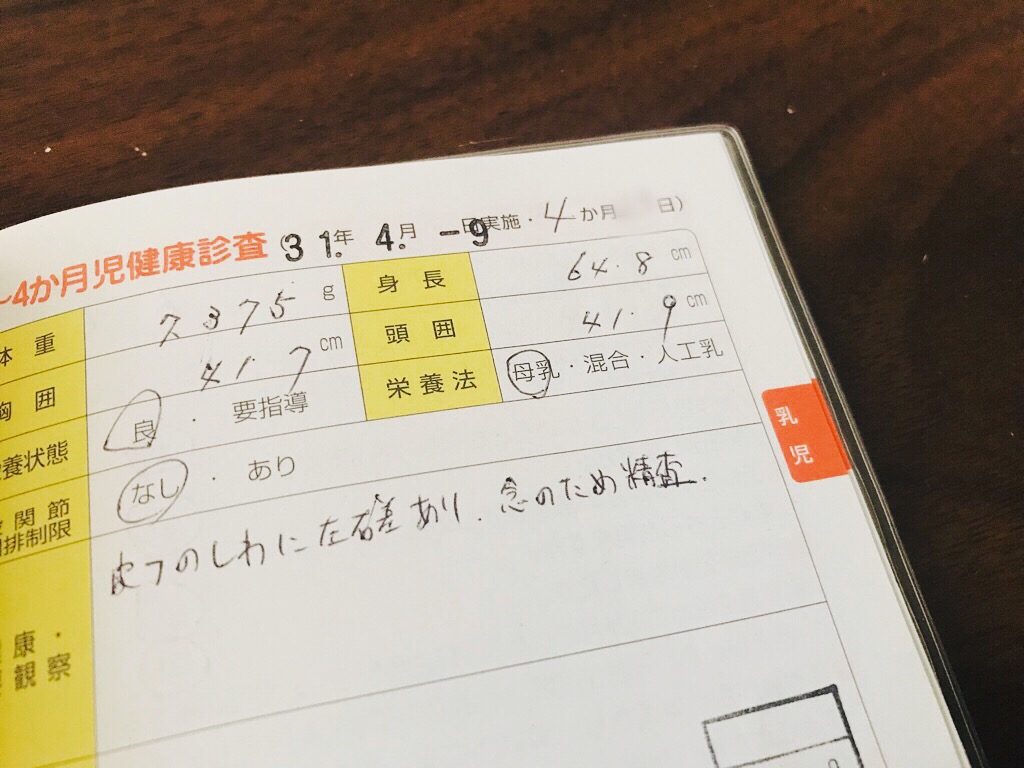 ～4か月児健康診査 (31.年 4.月 -9日実施・4か月 日)
体重 7375 g 身長 64.8 cm
胸囲 41.7 cm 頭囲 41.9 cm
栄養状態 良・要指導 栄養法 母乳・混合・人工乳
関節 なし・あり
排制限
皮フのしわに左右差あり.念のため精査.
康・
観察
乳児